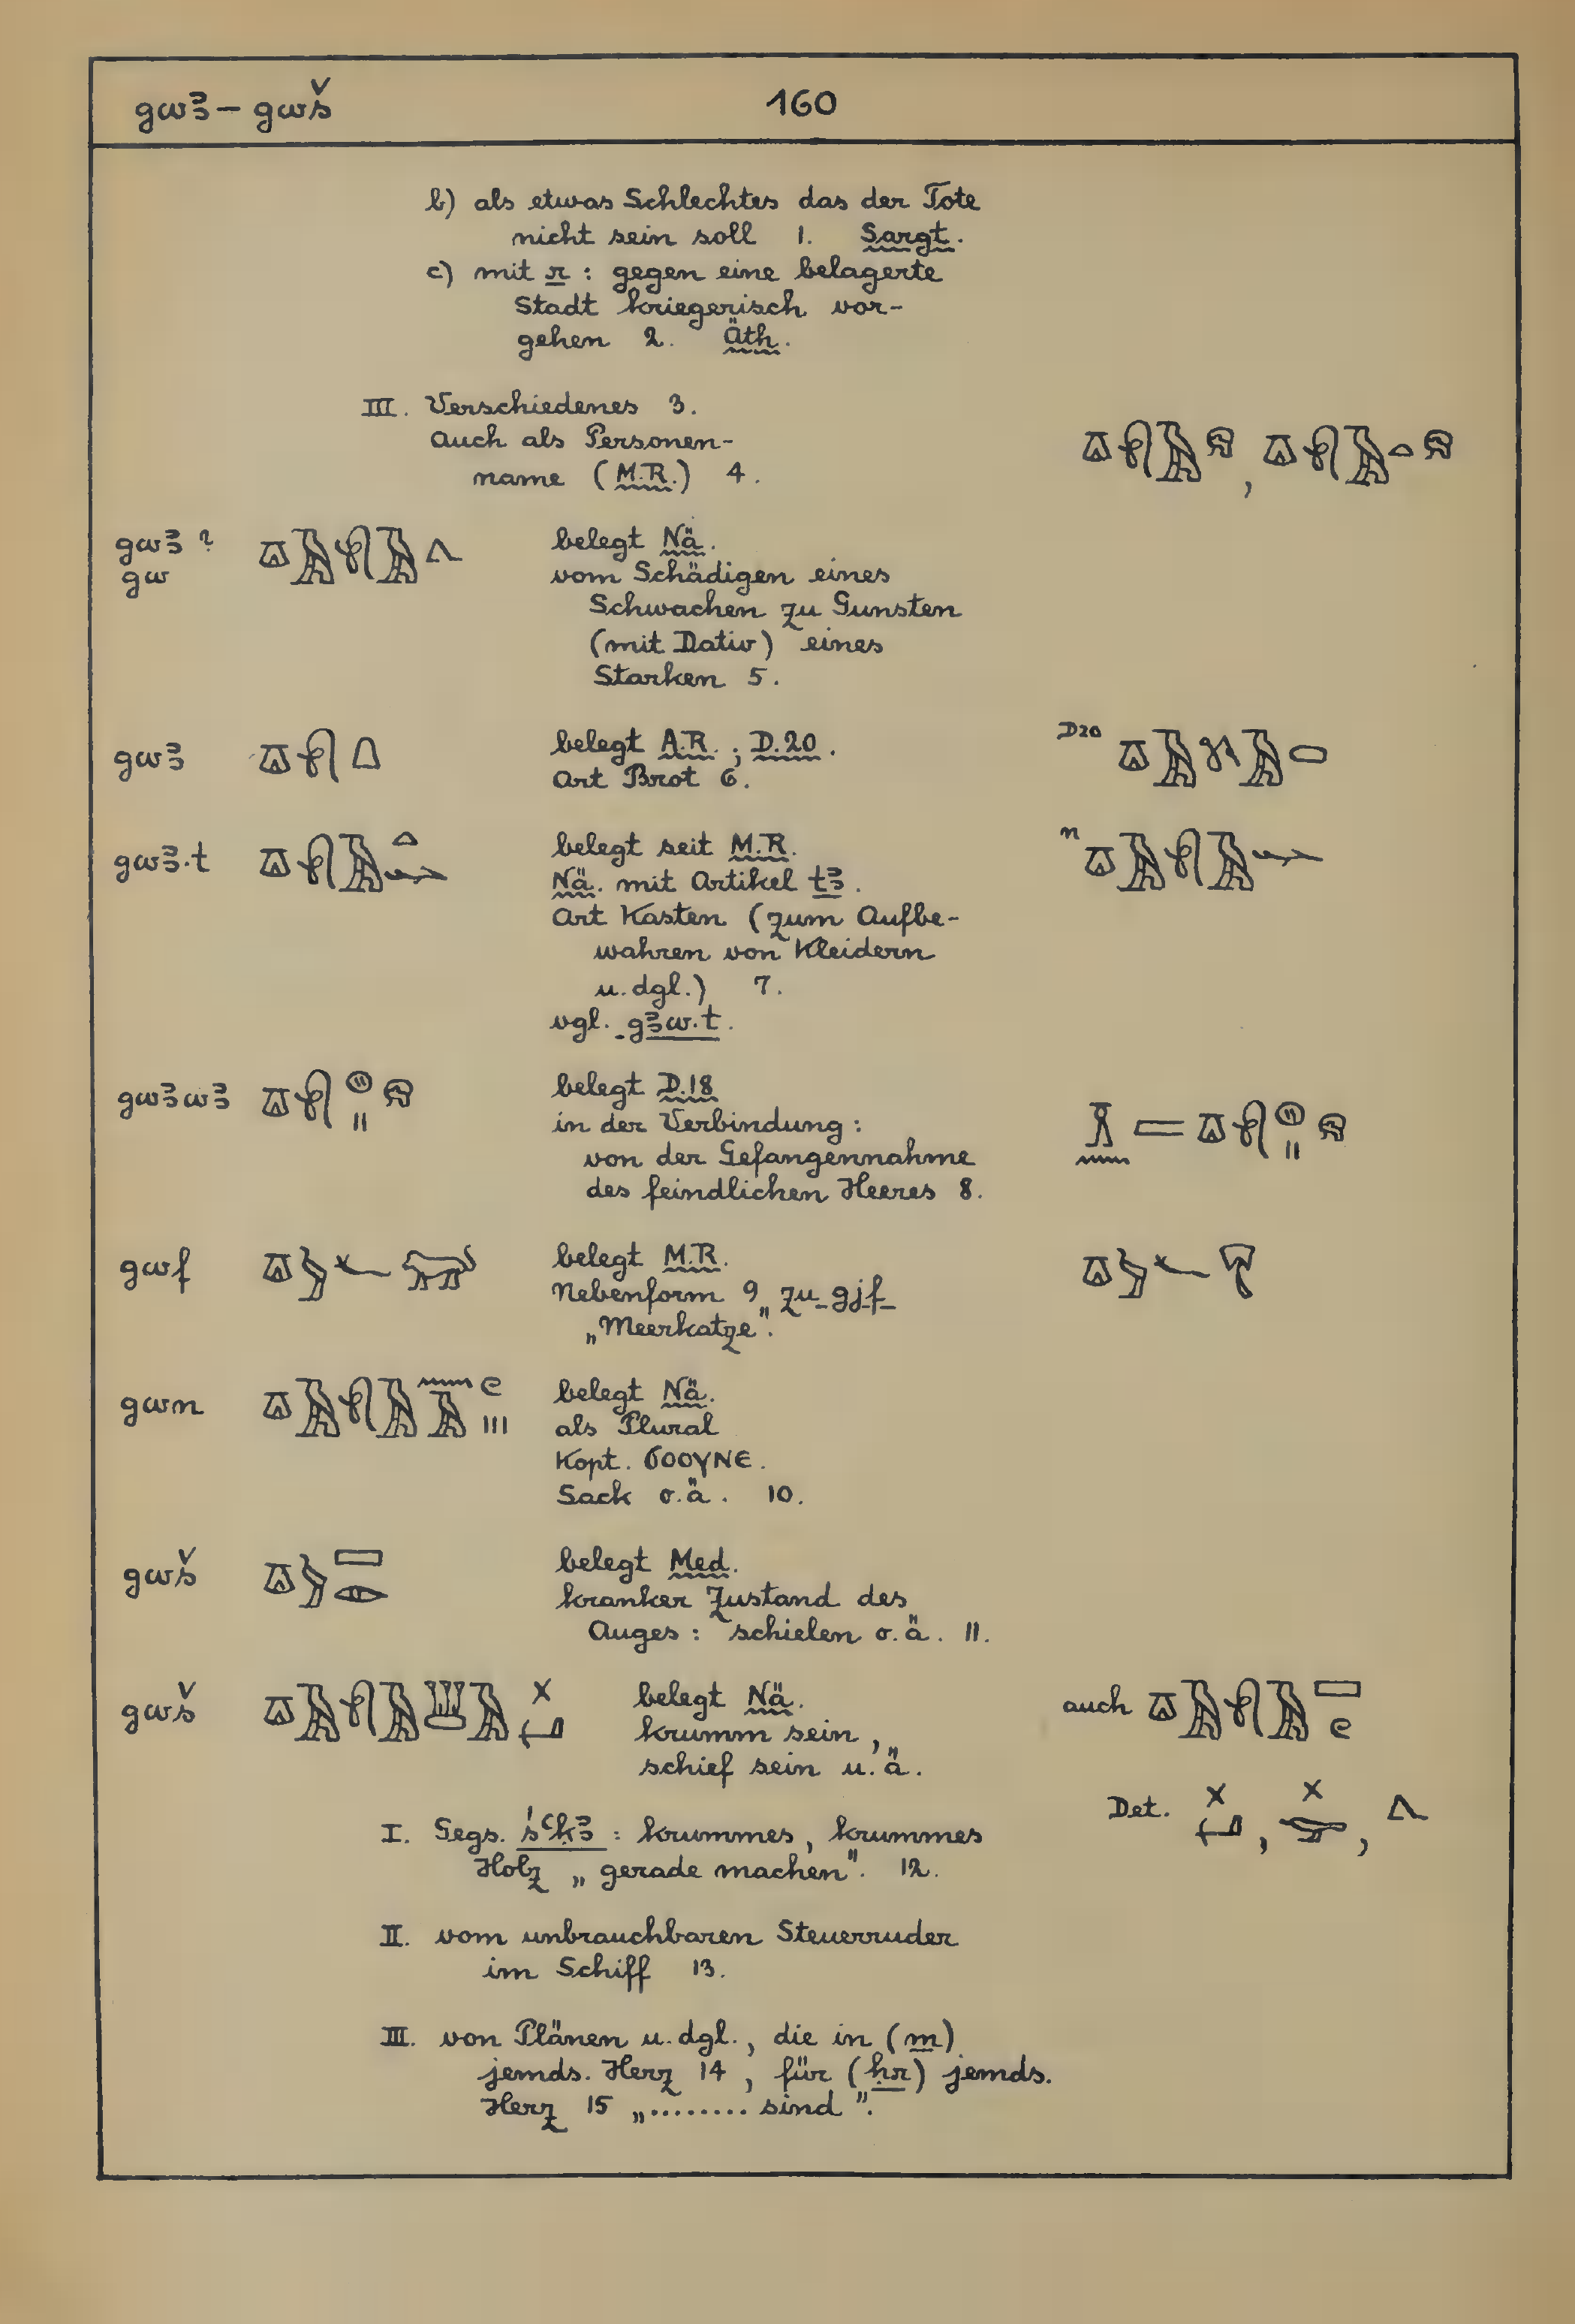 gwꜣ – gwš 160
b) als etwas Schlechtes das der Tote
nicht sein soll 1. Sargt.
c) mit r : gegen eine belagerte
Stadt kriegerisch vor-
gehen 2. Äth.
III. Verschiedenes 3.
auch als Personen-
name (M.R.) 4.
gwꜣ ? belegt Nä.
gw vom Schädigen eines
Schwachen zu Gunsten
(mit Dativ) eines
Starken 5.
gwꜣ belegt A.R. ; D.20. D20
Art Brot 6.
gwꜣ.t belegt seit M.R. n
Nä. mit Artikel tꜣ.
Art Kasten (zum Aufbe-
wahren von Kleidern
u. dgl.) 7.
vgl. gꜣw.t.
gwꜣwꜣ belegt D.18
in der Verbindung :
von der Gefangennahme
des feindlichen Heeres 8.
gwf belegt M.R.
Nebenform 9 zu gjf
„Meerkatze".
gwn belegt Nä.
als Plural
Kopt. ϬΟΟΥΝΕ.
Sack o.ä. 10.
gwš belegt Med.
kranker Zustand des
Auges : schielen o.ä. 11.
gwš belegt Nä. auch
krumm sein,
schief sein u.ä.
Det. , ,
I. Gegs. śꜥḳꜣ : krummes, krummes
Holz „gerade machen". 12.
II. vom unbrauchbaren Steuerruder
im Schiff 13.
III. von Plänen u. dgl., die in (m)
jemds. Herz 14, für (ḥr) jemds.
Herz 15 „........ sind".